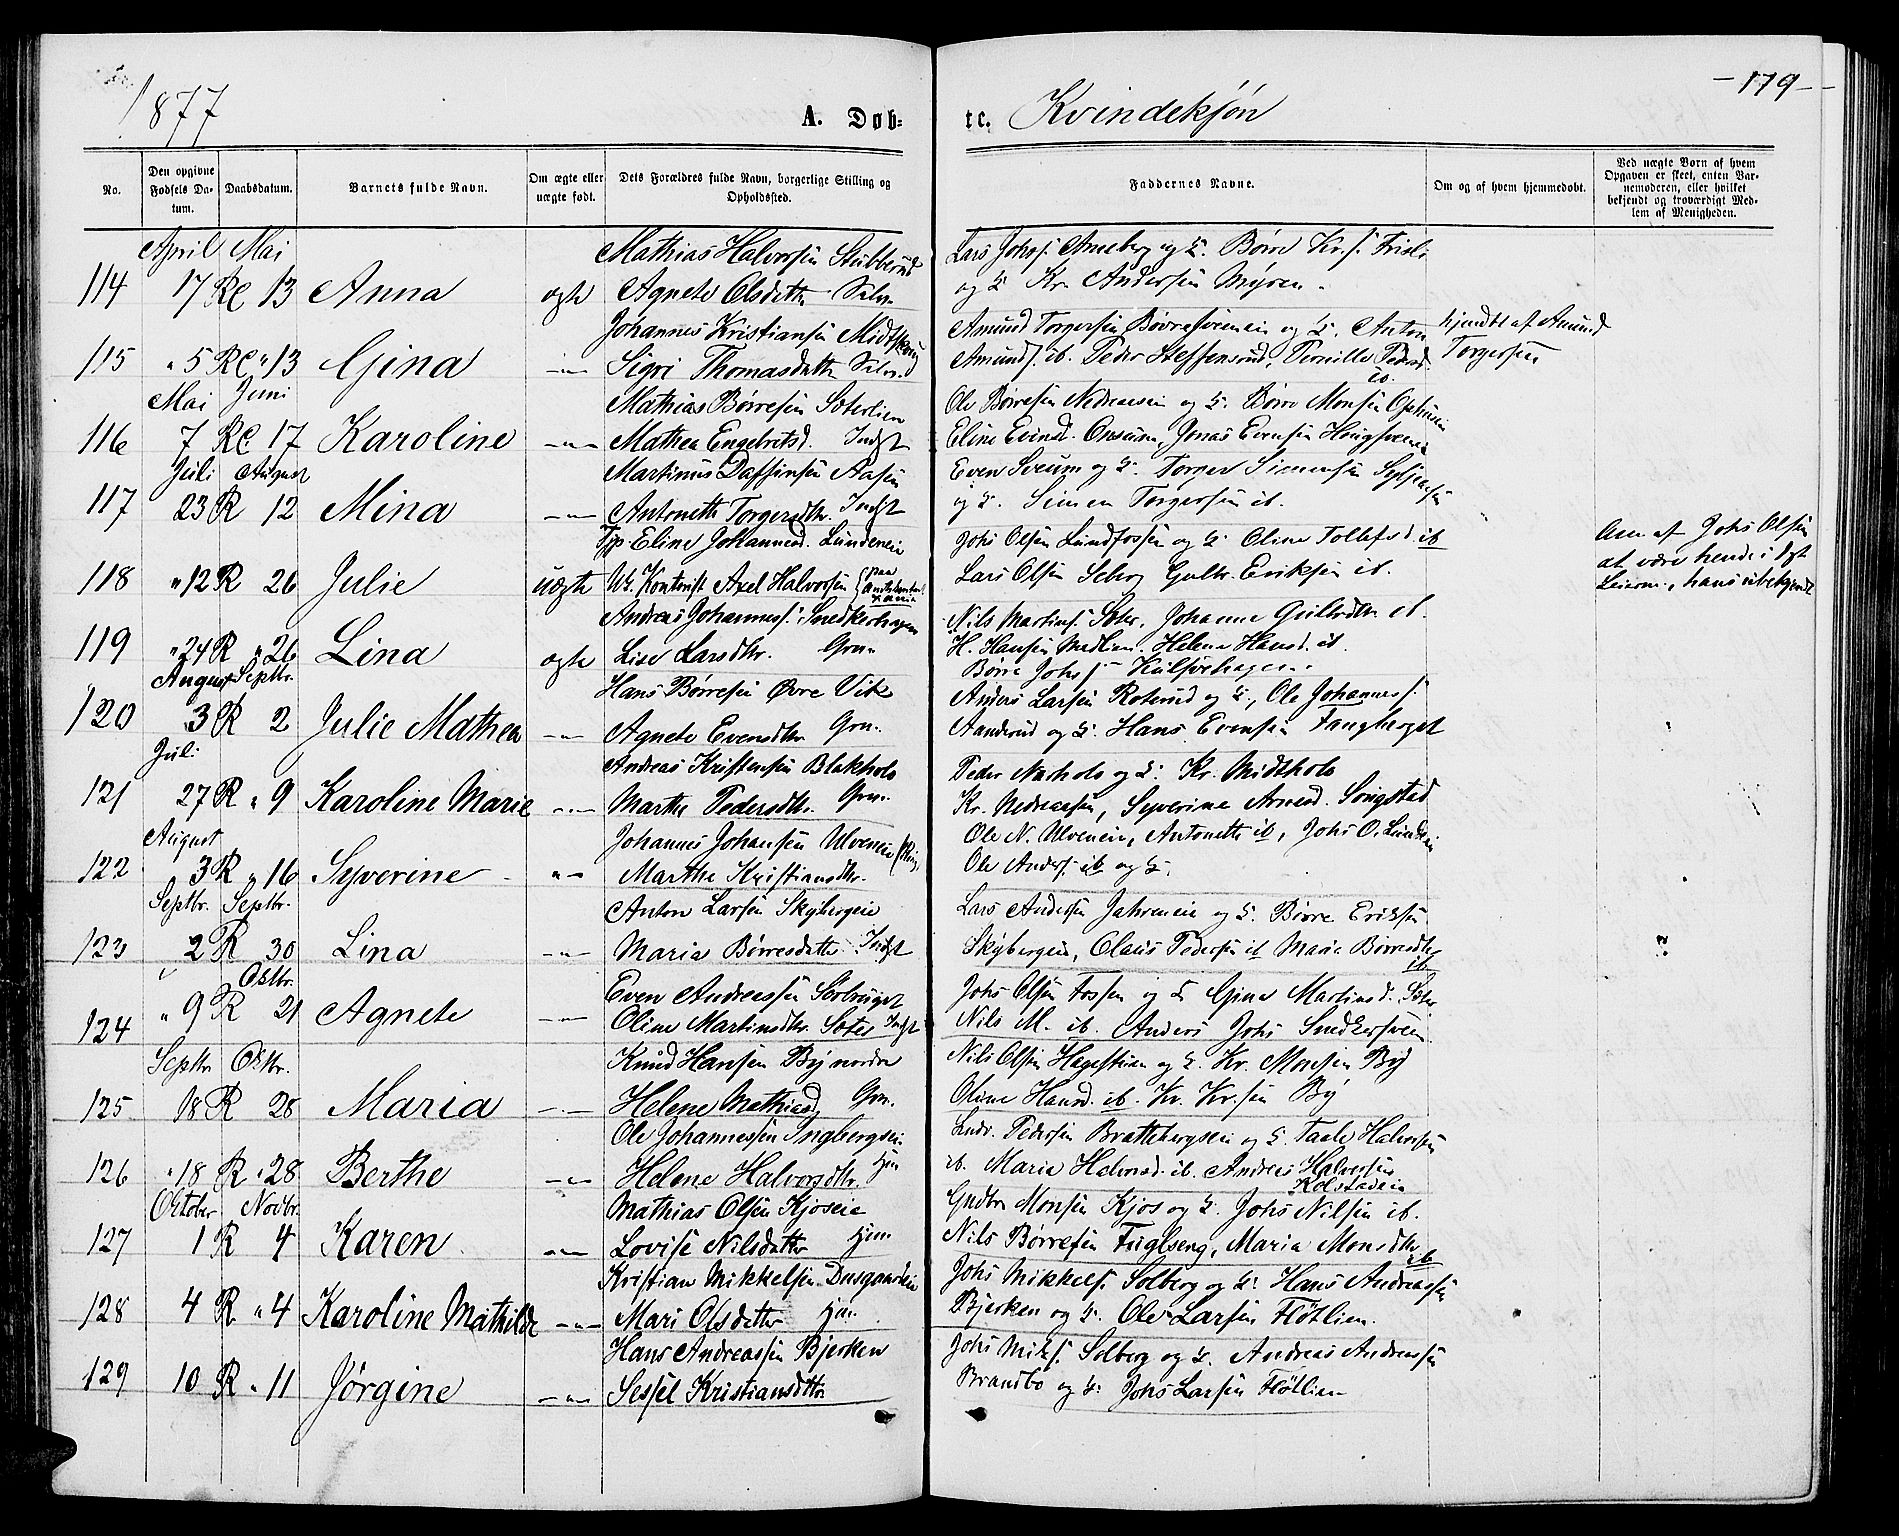 1877
A. Døb-
te. Kvindekjøn
-179-
No.
Den opgivne Fødsels Datum.
Daabsdatum.
Barnets fulde Navn.
Om ægte eller uægte født.
Dets Forældres fulde Navn, borgerlige Stilling og Opholdssted.
Faddernes Navne.
Om og af hvem hjemmedøbt.
Ved uægte Børn af hvem Opgaven er skeet, enten Barnemoderen, eller hvilket bekjendt og troværdigt Medlem af Menigheden.
April Mai
Mathias Halvorsen Stubberud
114 17 RC 13 Anna ægte Agnete Olsdatter Selv.
Lars Johs. Aneberg og H. Børre Kr.s.
og H. Kr. Andersen Myren.
Johannes Kristiansen Midtskoug
115 " 5 RC " 13 Gina -"- Sigri Thomasdatter Selv.
Amund Torgersen og H. Anton
Amunds. ib. Peder Steffensrud, Pernille Pedersd. ib.
hjmdbt af Amund
Torgersen
Mai Juni
Mathias Børresen Soterlien
116 7 RC 17 Karoline -"- Mathea Engebretsd. Indst
Ole Børresen og H. Børre Monsen
Eline Evensd. Onsum, Jonas Evensen
Juli August
Martinus Daffinsen Aasen
117 23 R 12 Mina -"- Antonette Torgersdtr. Indst
Even Sveum og H. Torger Simensen
og H. Simen Torgersen ib.
Pige Eline Johannesd. Lundeneie
118 " 12 R 26 Julie uægte Ug. Kontorist Axel Halvorsen paa
Johs Olsen Lundfossen og H. Oline Tollefsd. ib
Lars Olsen Gulbr. Eriksen ib.
Anm. af Johs Olsen
at være hendes 1ste
Leierm., hans ubekjendt
Andreas Johanness. Snedkerhagen
119 " 24 R " 26 Lina ægte Lise Larsdtr. Grn.
Nils Martins. Soter, Johanne Gulbrdtr. ib.
H. Hansen Helene Hansd. ib.
Børre Johs.
August Septbr.
Hans Børresen Øvre Vik
120 3 R 2 Julie Mathea -"- Agnete Evensdtr. Grn.
Anders Larsen Roterud og H., Ole Johanness.
Aanderud og H. Hans Evensen Fangberget
Juli
Andreas Kristensen Blakhols
121 27 R " 9 Karoline Marie -"- Marthe Pedersdtr. Grn.
Peder Narhols og H. Kr. Midthols
Kr. Nedreaasen, Syverine Arnesd. Songstad
August
Johannes Johansen Ulveneie (Ring
122 3 R " 16 Syverine -"- Marthe Kristiansdtr.
Ole N. Ulveneie, Antonette ib, Johs O. Lundeneie
Ole Anders. ib og H.
Septbr. Septbr.
Anton Larsen Skybergeie
123 2 R 30 Lina -"- Maria Børresdatter Indst
Lars Andersen og H. Børre Eriksen
Skybergeie, Olaus Pedersen ib Maria Børresdtr ib
" Oktbr.
Even Andreassen
124 " 9 R 21 Agnete -"- Oline Martinsdtr. Soter Indst
Johs Olsen Fossen og H. Gina Martinsd. Soter
Nils M. ib. Anders Johs Snedkersveen
Septbr Oktbr.
Knud Hansen By nordre
125 18 R 28 Maria -"- Helene Mathiasd Grn.
Nils Olsen Hagestuen og H. Kr. Monsen By
Oline Hansd. ib. Kr. Kr.sen By
Ole Johannessen Ingbergseie
126 " 18 R " 28 Berthe -"- Helene Halvorsdtr. Hjm
Pedersen Brattebergseie og H. Taale Halvorsen
ib. Maria Halvorsd. ib. Andreas Halvorsen
Kolstadeie
Oktober Novbr.
Mathias Olsen Kjoseie
127 1 R 4 Karen -"- Lovise Nilsdatter Hjm
Gudbr. Monsen Kjos og H. Johs Nilsen ib.
Nils Børresen Fuglseng, Maria Monsdtr ib
Kristian Mikkelsen Dusgaardeie
128 4 R " 4 Karoline Mathilde -"- Mari Olsdatter Hjm.
Johs Mikkels. Solberg og H. Hans Andreassen
Bjerken og H. Ole Larsen Fløtlien.
Hans Andreassen Bjerken
129 10 R " 11 Jørgine -"- Sessel Kristiansdtr
Johs Miks. Solberg og H. Andreas Andreassen
Brandbo og H. Johs Larsen Fløtlien